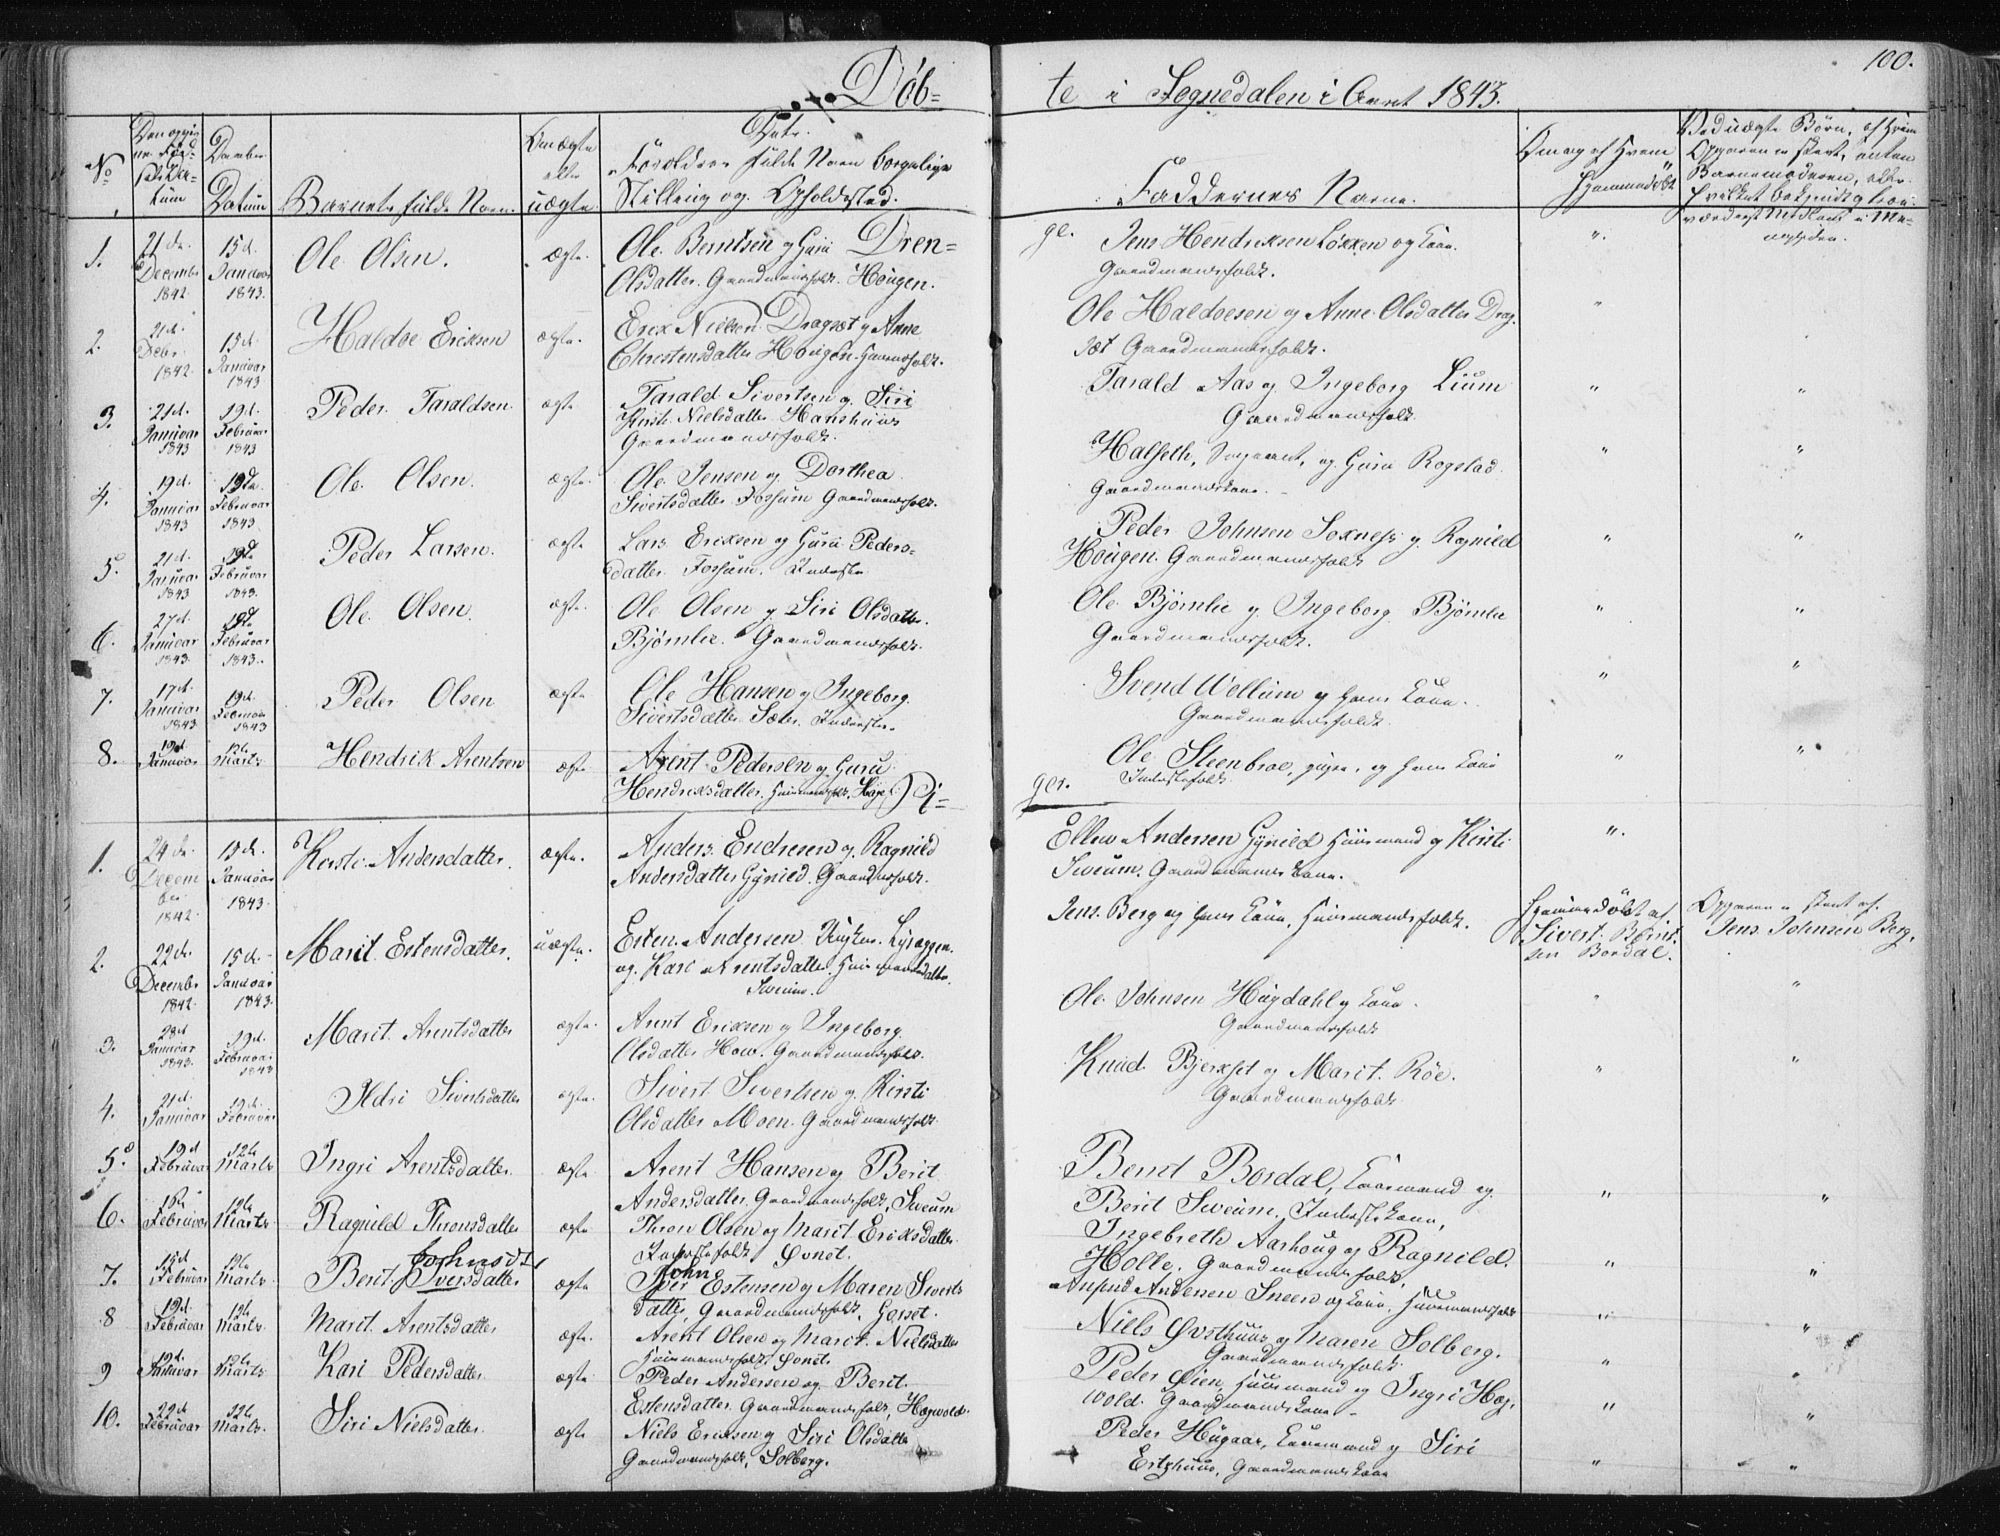 100.
Döb= te i Sognedalen i Aaret 1843.
No
Datum
Daabs Datum
Barnets fulde Navn.
Om ægte eller uægte.
Dato.
Forældres fulde Navn borgelige
Stilling og Opholdssted.
Faddernes Navne.
Ved uægte Børn, af Hvem
Opgaven er skeet, enten
Barnemoderen, eller
Dren= ge.
1. 21de December 1842 15d. Januar 1843. Ole Olsen. ægte. Ole Berntsen og Guri
Olsdatter. Gaardmandsfolk. Hougen. Jens Hendriksen Løkken og Kone.
Gaardmandsfolk. "
2. 21d. Debr. 1842. 15d. Januar 1843 Haldoe Eriksen ægte. Erik Nielsen Dragset og Anne
Christensdatter Hougen. Huusmandsfolk. Ole Haldoesen og Anne Olsdatter Drag-
sæt Gaardmandsfolk. "
3. 21d. Januar 1843 19d. Februar 1843 Peder Taraldsen ægte Tarald Sivertsen og Siri
Kirsti Nielsdatter Hanshuus
Gaardmandsfolk. Tarald Aas og Ingeborg Lium
Gaardmandsfolk. " "
4. 19d. Januar 1843 19de Februar 1843 Ole Olsen. ægte. Ole Jensen og Dorthea
Sivertsdatter Fossum Gaardmandsfolk. Halseth, Sergeant, og Guru Rogstad
Gaardmandskone. " "
5. 21d. Januar 1843 19de Februar 1843. Peder Larsen. ægte Lars Eriksen og Guru Peders-
datter Fossum. Inderste Peder Johnsen Soknes og Ragnild
Hougen. Gaardmandsfolk " "
6. 27d. Januar 1843. 19de Februar 1843. Ole Olsen. ægte. Ole Olsen og Siri Olsdatter.
Björnlie. Gaardmandsfolk. Ole Björnlie og Ingeborg Björnlie
Gaardmandsfolk. " "
7. 17d. Januar 1843. 19d. Februar 1843 Peder Olsen ægte Ole Hansen og Ingeborg
Sivertsdatter Sæter. Inderster. Svend Wollum og hans Kone.
Gaardmandsfolk. " "
8. 19d Januar 12te Marts Hendrik Arentsen ægte Arent Pedersen og Guru
Hendriksdatter, Huusmandsfolk, Ole Steenbroe, og hans Kone
Inderstefolk. " "
Pi= ger.
1. 24de December 1842. 15d. Januar 1843. Kirsti Andersdatter. ægte. Anders Endresen og Ragnild
Andersdatter Gynild. Gaardmandsfolk. Ellew Andersen Gynild Huusmand og Kirsti
Sweum. Gaardmandskone. "
2. 22de. December 1842 15d. Januar 1843. Marit Estensdatter. uægte. Esten Andersen
og Kari Arentsdatter. Huusmandsdatter.
Sweum. Jens Berg og hans Kone, Huusmandsfolk. Hjemmedöbt af
Sivert Bernt-
sen Bordal. Opgaven er skeet af
Jens Johnsen Berg.
3. 28d Januar 1843. 19d. Februar 1843 Marit Arentsdatter ægte. Arent Eriksen og Ingeborg
Olsdatter How. Gaardmandsfolk. Ole Johnsen Hugdahl og Kone.
Gaardmandsfolk " "
4. 21d. Januar 19d. Februar Ildri Sivertsdatter ægte. Sivert Sivertsen og Kirsti
Olsdatter Moen. Gaardmandsfolk. Knud Bjerkset og Marit Röe.
Gaardmandsfolk " "
5. 19d Februar 12te Marts Ingri Arentsdatter ægte Arent Hansen og Berit
Andersdatter Gaardmandsfolk, Sweum Bernt Bordal, og
Berit Sweum, Inderstekone, " "
6. Februar 12te Marts Ragnild Thronsdatter ægte Thron Olsen og Marit Eriksdatter
Inderstefolk Qvnet. Ingebreth Aarhoug og Ragnild
Holle, Gaardmandsfolk, " "
7. 15d Februar 12te Marts Johnsdt. Berit Iversdatter ægte John Iver Estensen og Maren Siverts
datter, Gaardmandsfolk, Gorset. Andersen Sneen og Kone, Huusmandsfolk
8 19d. Februar 12te Marts Marit Arentsdatter ægte. Arent Olsen og Marit Nielsdatter
Huusmandsfolk, Niels Qvsthuus og Maren Solberg.
Gaardmandsfolk. " "
9 19d. Januar 12te Marts Kari Pedersdatter ægte Peder Andersen og Berit
Estensdatter Gaardmandsfolk, Hægwold. Peder Öien, Huusmand og Ingri Hæg-
wold. Gaardmandskone. " "
10. 22d Februar 12te Marts. Siri Nielsdatter. ægte Niels Eriksen og Siri Olsdatter
Gaardmandsfolk, Solberg. Peder Hugaas, og Siri
Estzhuus, Gaardmandskone " "